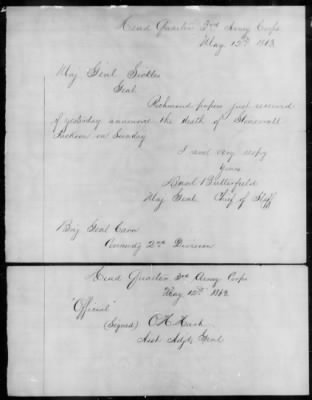 Head Quarters 3rd Army Corps
May 12th 1863
Maj Genl Sickles
Genl
Richmond papers just received
of yesterday announce the death of Stonewall
Jackson on Sunday
I am very respy
Yours
Danl Butterfield
Maj Genl Chief of Staff
Brig Genl Carr
Commdg 2nd Division
Head Quarters 3rd Army Corps
May 12th 1863
"Official"
(Signed) O H Hart
Asst Adjt Genl